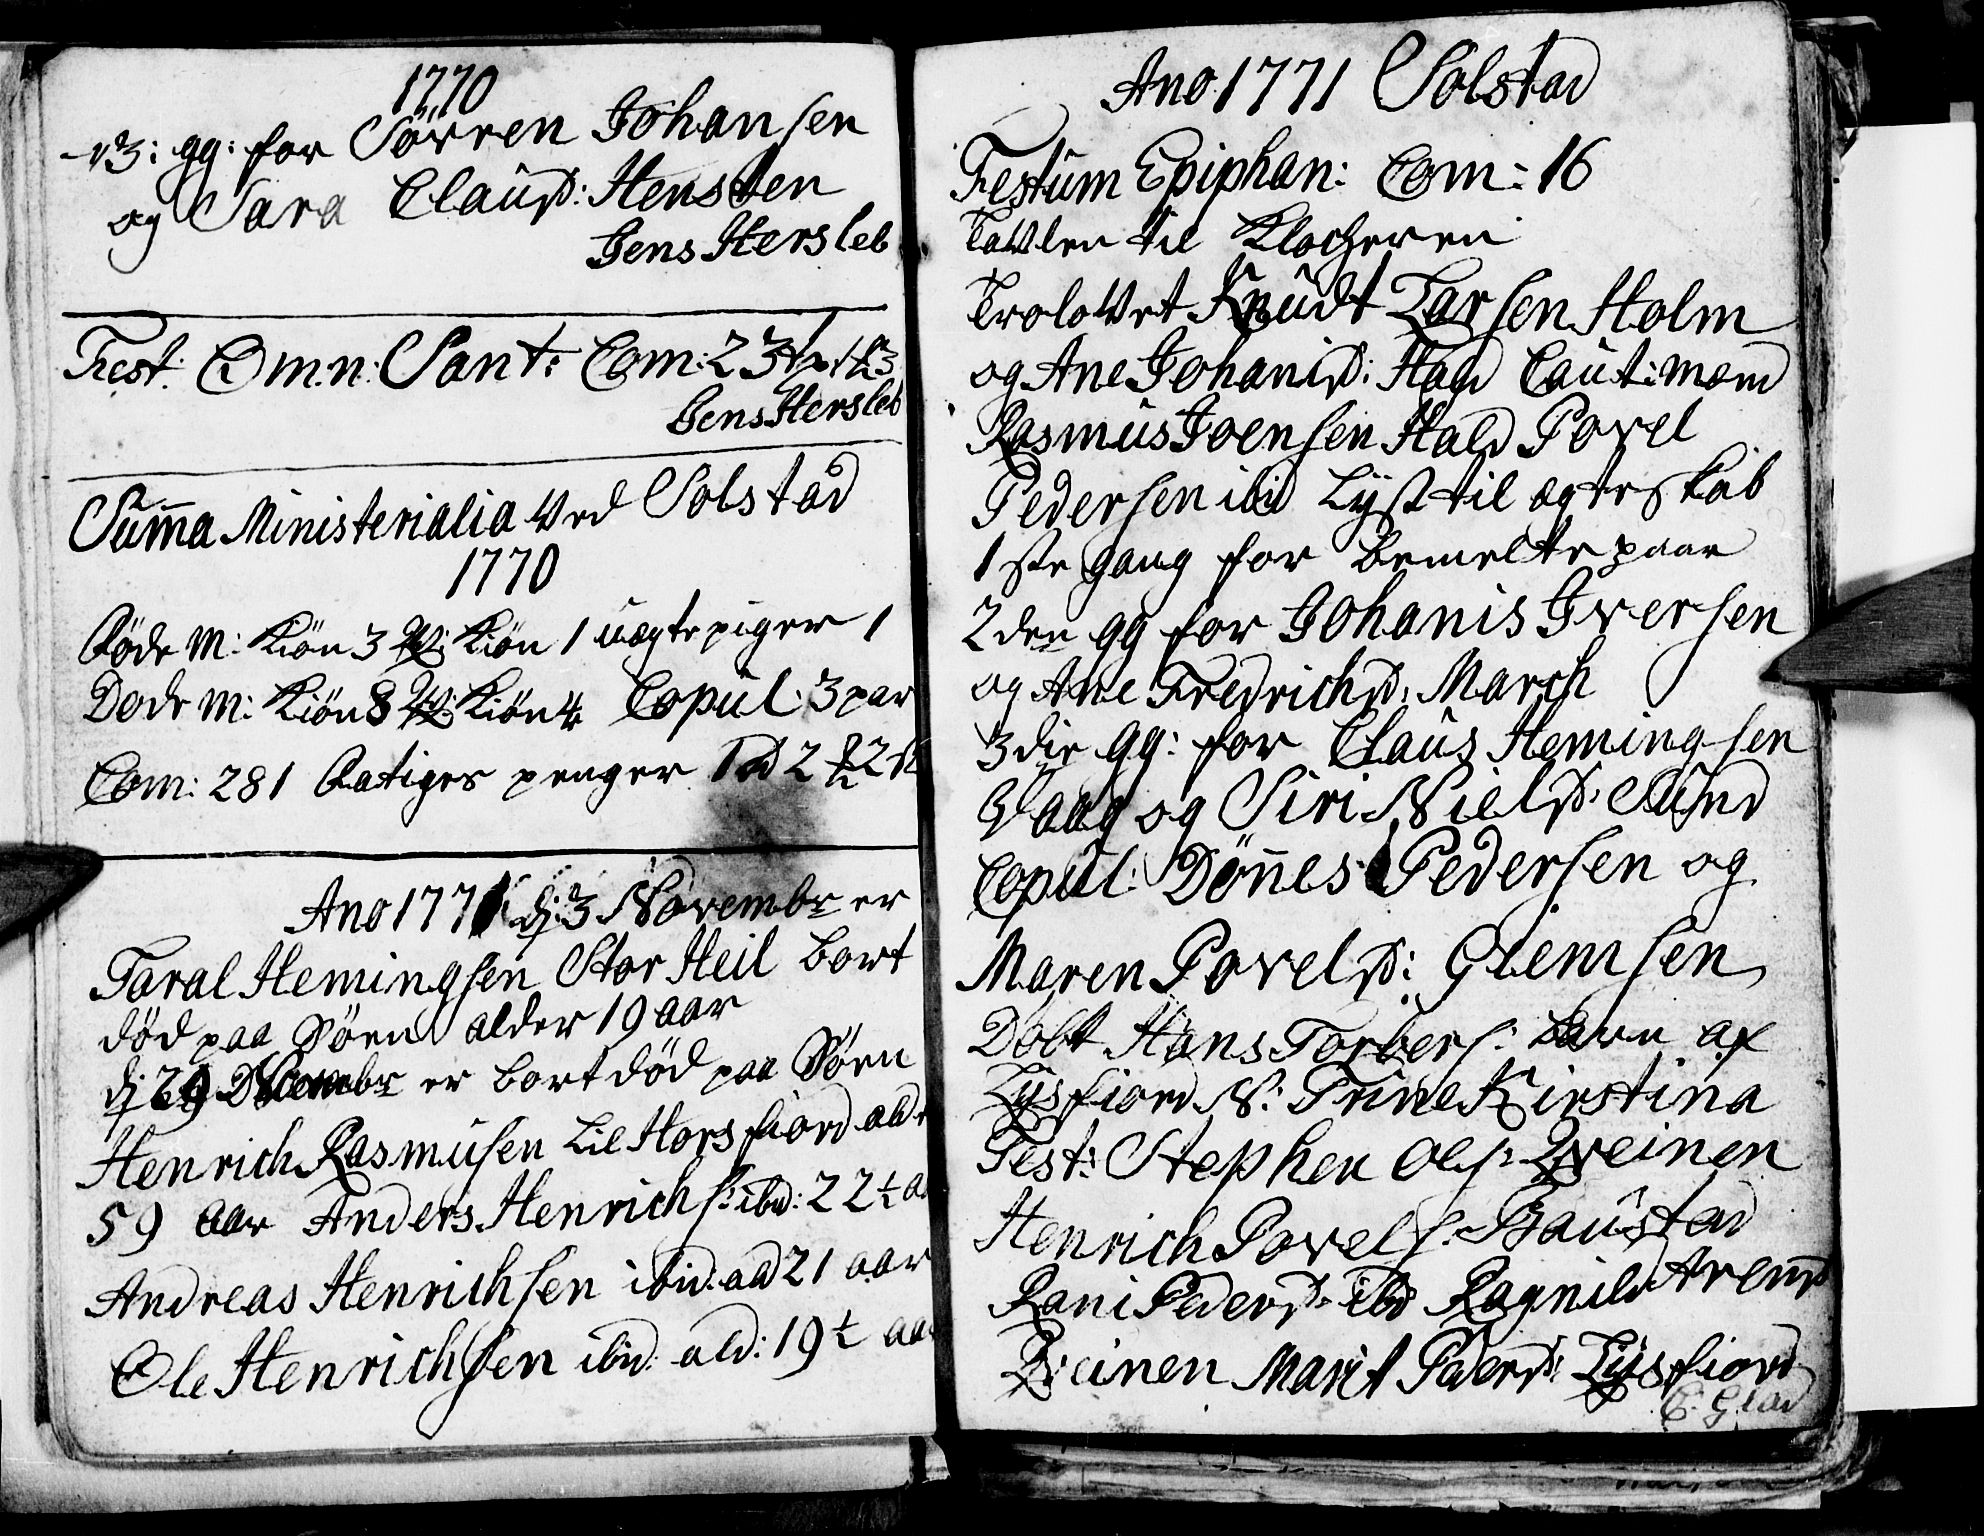 1770
3: gg: for Sörren Johansen
og Sara Clausd: Hensten
Jens Hersleb
Fest: Omn: Sant: Com: 23
Jens Hersleb
Suma Ministerialia ved Solstad
1770
Föde M: Kiön 3 Qv: Kiön 1 uægte piger 1
Döde M: Kiön 8 Qv: Kiön 4 Copul: 3 par
Com: 281 Fatiges penger 1 rd 2 22 s
Ano 1771 d: 3 Novembr er
Taral Hemingsen Stor Heil bort
död paa Söen alder 19 aar
d: 29 er bort död paa Söen
Henrich Rasmusen Lil Horsfiord ald:
59 aar Anders Henrichs: ibid: 22½ a
Andreas Henrichsen ibid: ald 21 aar
Ole Henrichsen ibid: ald: 19½ aa
Ano 1771 Solstad
Festum Epiphan: Com: 16
Tavlen til Klocheren
Trolovet Knudt Larsen Holm
og Ane Johanisd: Hagd Caut: mænd
Rasmus Joensen Hald Povel
Pedersen ibid Lyst til ægteskab
1ste gang for bemelte paar
2den gg for Johanis Iversen
og Ane Fredrichsd: March
3die gg: for Claus Hemingsen
Vaag og Siri Nielsd: Sund
Copul: Dönnes Pedersen og
Maren Povelsd: Glemsen
Döbt Hans Torbers: barn af
Lysfiord N: Trine Kirstina
Test: Stephen Ols: Qveinen
Henrich Povels: Baustad
Rani Pedersd: ibd Ragnild Arensd
Qveinen Marit Pedersd: Lysfiord
C. Glad